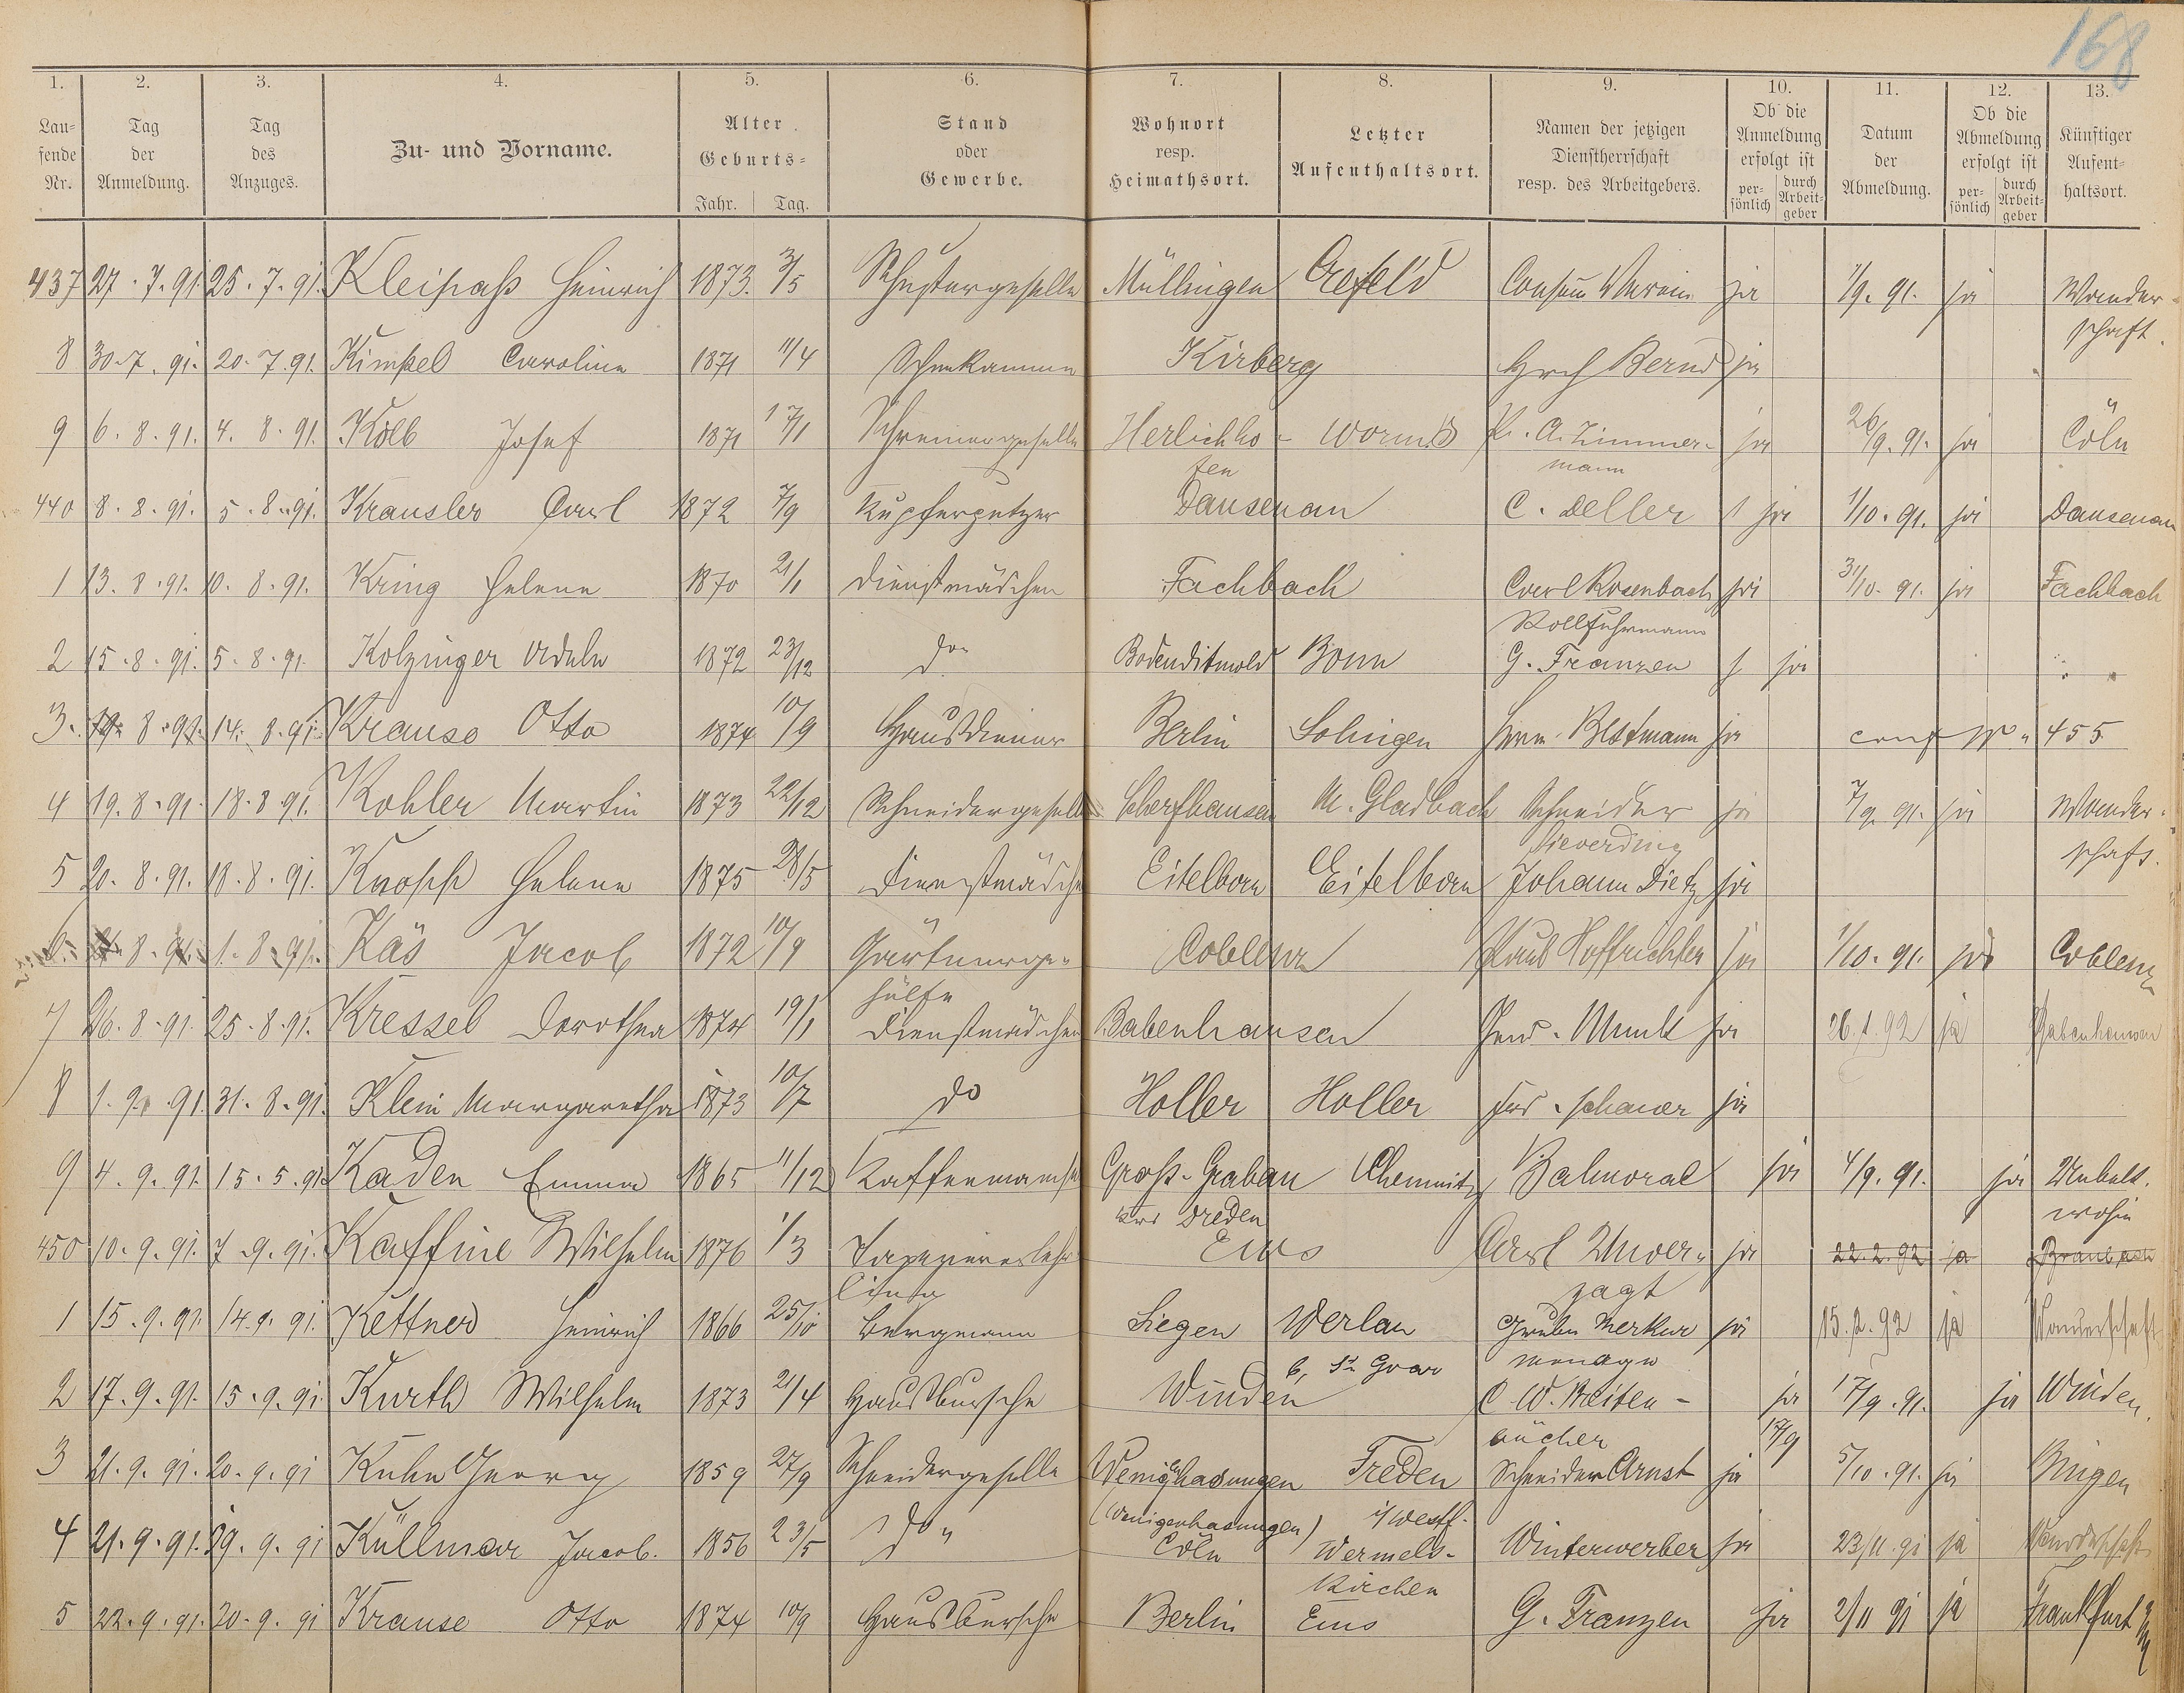 168
1. 2. 3. 4. 5. 6. 7. 8. 9. 10. 11. 12. 13.
Lau-fende Nr. Tag der Anmeldung. Tag des Anzuges. Zu- und Vorname. Alter Geburts- Jahr. Tag. Stand oder Gewerbe. Wohnort resp. Heimathsort. Letzter Aufenthaltsort. Namen der jetzigen Dienstherrschaft resp. des Arbeitgebers. Ob die Anmeldung erfolgt ist per-sönlich durch Arbeit-geber Datum der Abmeldung. Ob die Abmeldung erfolgt ist per-sönlich durch Arbeit-geber Künftiger Aufent-haltsort.
437 27.7.91. 25.7.91. Kleipaß Heinrich 1873. 3/5 Schustergeselle Müllingen Crefeld Consum Verein ja 1/9.91. ja Wander-
schaft.
8 30.7.91. 20.7.91. Kimpel Caroline 1871 11/4 Kirberg Hrch Bernd ja
9 6.8.91. 4.8.91. Kolb Josef 1871 17/1 Schreinergeselle Herlichko- Worms A. Zimmer- ja 26/9.91. ja Cöln
ten mann
440 8.8.91. 5.8.91. Krausler Carl 1872 7/9 Kupferputzer Dausenau C. Deller ja 1/10.91. ja Dausenau
1 13.8.91. 10.8.91. Kring Helene 1870 21/1 Dienstmädchen Fachbach Carl Rosenbach ja 31/10.91. ja Fachbach
Rollfuhrmann
2 15.8.91. 5.8.91. Kolzinger Adele 1872 23/12 do Bodenditmold Bonn G. Franzen ja
3. 19.8.91. 14.8.91. Krause Otto 1874 10/9 Hausdiener Berlin Solingen Herm. Bestmann ja conf № 455
4 19.8.91. 18.8.91. Kohler Martin 1873 22/12 Schneidergeselle Scherfhausen M. Gladbach Schneider ja 7/9.91. ja Wander-
Sieverding schaft.
5 20.8.91. 18.8.91. Knopp Helene 1875 28/5 Dienstmädchen Eitelborn Eitelborn Johann Dietz ja
6. 8.91. 1.8.91. Käs Jacob 1872 10/9 Gärtnerge- Coblenz Paul Hoffrichter ja 1/10.91. ja Coblenz
hülfe
7 26.8.91. 25.8.91. Kressel Dorothea 1874 19/1 Dienstmädchen Babenhausen Ferd. Munk ja 26.1.92 ja Babenhausen
8 1.9.91. 31.8.91. Klein Margaretha 1873 10/7 do Holler Holler Ferd. Schauer ja
9 4.9.91. 15.5.91. Kaden Emma 1865 11/12 Kaffeemamsell Groß-Grabau Chemnitz Balmoral ja 4/9.91. ja Unbek.
Krs Dreden wohin
450 10.9.91. 7.9.91. Kaffine Wilhelm 1876 1/3 Tapeziererlehr- Ems Carl Unver- ja 22.2.92 ja Braubach
ling zagt
1 15.9.91. 14.9.91. Kettner Heinrich 1866 25/10 Bergmann Siegen Werlau Grube Merkur ja 15.2.92 ja Wanderschaft
b. St. Goar menage
2 17.9.91. 15.9.91. Kurth Wilhelm 1873 21/4 Hausbursche Winden C. W. Breiten- ja 17/9.91. ja Winden.
bücher 17/9
3 21.9.91. 20.9.91 Kuhn Georg 1859 27/9 Schneidergeselle Wenighasungen Freden Schneider Ernst ja 5/10.91. ja Bingen
(Wenigenhasungen) i/Westf.
4 21.9.91. 19.9.91 Küllmar Jacob. 1856 23/5 do Cöln Wermels- Winterwerber ja 23/11.91 ja Wanderschaft
kirchen
5 22.9.91. 20.9.91 Krause Otto 1874 10/9 Hausbursche Berlin Ems G. Franzen ja 2/11 91 ja Frankfurt a/M